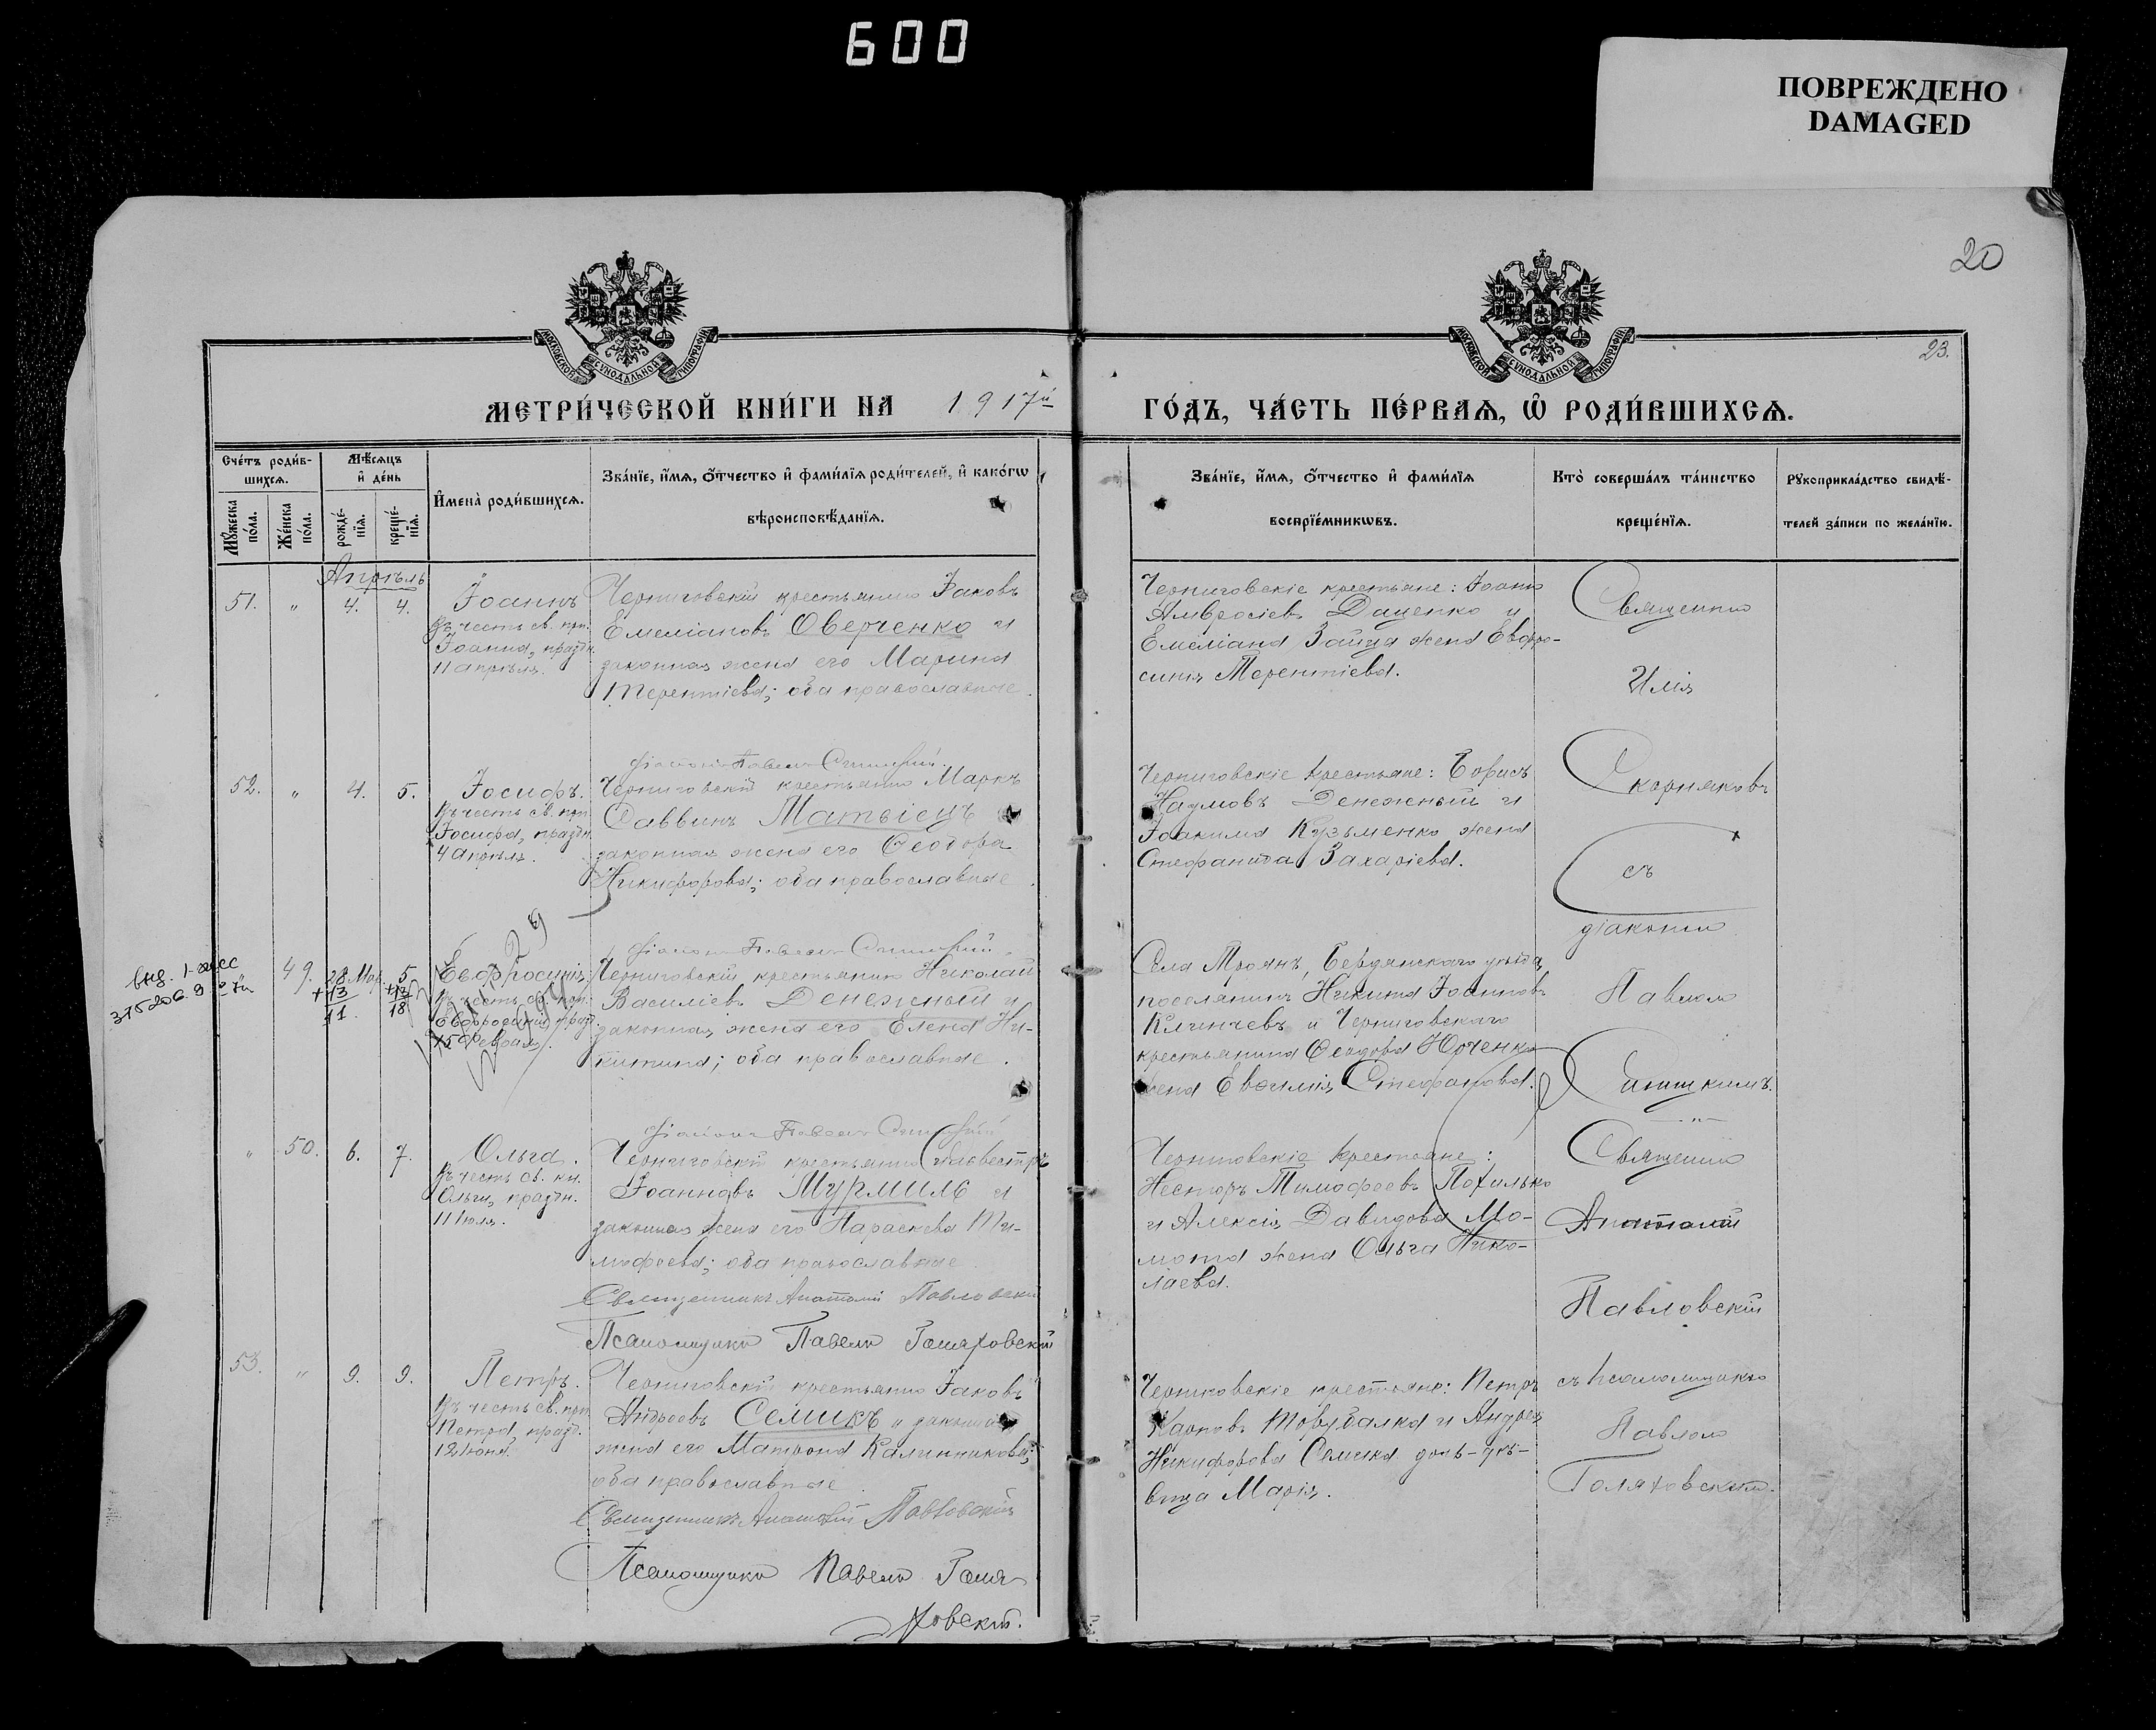 600
ПОВРЕЖДЕНО
DAMAGED
20
23.
МОСКОВСКОЙ СѴНОДАЛЬНОЙ ТИПОГРАФІИ
МОСКОВСКОЙ СѴНОДАЛЬНОЙ ТИПОГРАФІИ
МЕТРИ́ЧЕСКОЙ КНИ́ГИ НА 1917й ГО́ДЪ, ЧА́СТЬ ПЕ́РВАѦ, Ѡ҆ РОДИ́ВШИХСѦ.
Сче́тъ роди́в-
шихсѧ.
Мꙋ́жеска по́ла.
Же́нска по́ла.
Мѣ́сѧцъ
и҆ де́нь
рожде́-
нїѧ.
креще́-
нїѧ.
И҆мена̀ роди́вшихсѧ.
Зва́нїе, и҆́мѧ, ѻ҆́тчество и҆ фами́лїѧ роди́телей, и҆ како́гѡ
вѣроисповѣ́данїѧ.
Зва́нїе, и҆́мѧ, ѻ҆́тчество и҆ фами́лїѧ
воспрїе́мникѡвъ.
Кто̀ соверша́лъ та́инство
креще́нїѧ.
Рꙋкоприкла́дство свидѣ́-
телей за́писи по жела́нїю.
Апрѣль
51. " 4. 4.
Іоаннъ
Въ честь св. прп.
Іоанна, праздн.
11 апрѣля.
Черниговскій крестьянинъ Іаковъ
Емеліановъ Оверченко и
законная жена его Марина
Терентіева; оба православные.
Черниговскіе крестьяне: Іоаннъ
Амвросіевъ Даценко и
Емеліана Зайца жена Евфро-
синія Терентіева.
Священникъ
Илія
діаконъ Павелъ
52. " 4. 5.
Іосифъ.
Въ честь св. прп.
Іосифа, праздн.
4 апрѣля.
Черниговскій крестьянинъ Маркъ
Саввинъ Матвіецъ и
законная жена его Ѳеодора
Никифорова; оба православные.
Черниговскіе крестьяне: Борисъ
Наумовъ Денежный и
Іоакима Кузьменко жена
Стефанида Захаріева.
Скорняковъ
съ
діакономъ
діаконъ Павелъ
внд.
49. 28 Мар. 5
+13 +13
11. 18
Евфросинія.
Въ честь св. прп.
Евфросиніи, празд.
15 Февраля.
Черниговскій крестьянинъ Николай
Василіевъ Денежный и
законная жена его Елена Ни-
китина; оба православные.
Села Троянъ, Бердянскаго уѣзда,
поселянинъ Никита Іоанновъ
и Черниговскаго
крестьянина Ѳеодора Юрченко
жена Евѳимія Стефанова.
Павломъ
діаконъ Павелъ
" 50. 6. 7.
Ольга.
Въ честь св. кн.
Ольги, праздн.
11 Іюля.
Черниговскій крестьянинъ Сильвестръ
Іоанновъ Мурмиль и
законная жена его Параскева Ти-
мофеева; оба православные.
Священникъ Анатолій Павловскій
Псаломщикъ Павелъ Голяховскій
Черниговскіе крестьяне:
Несторъ Тимофеевъ Похилько
и Алексія Давидова Мо-
мота жена Ольга Нико-
лаева.
Священникъ
Анатолій
Павловскій
53. " 9. 9.
Петръ.
Въ честь св. прп.
Петра, празд.
12 Іюня.
Черниговскій крестьянинъ Іаковъ
Андреевъ Семикъ и законная
жена его Матрона Каллиникова;
оба православные.
Священникъ Анатолій Павловскій
Псаломщикъ Павелъ Голя-
ховскій.
Черниговскіе крестьяне: Петръ
Карповъ и Андрея
Никифорова Семика дочь-дѣ-
вица Марія.
съ псаломщикомъ
Павломъ
Голяховскимъ.